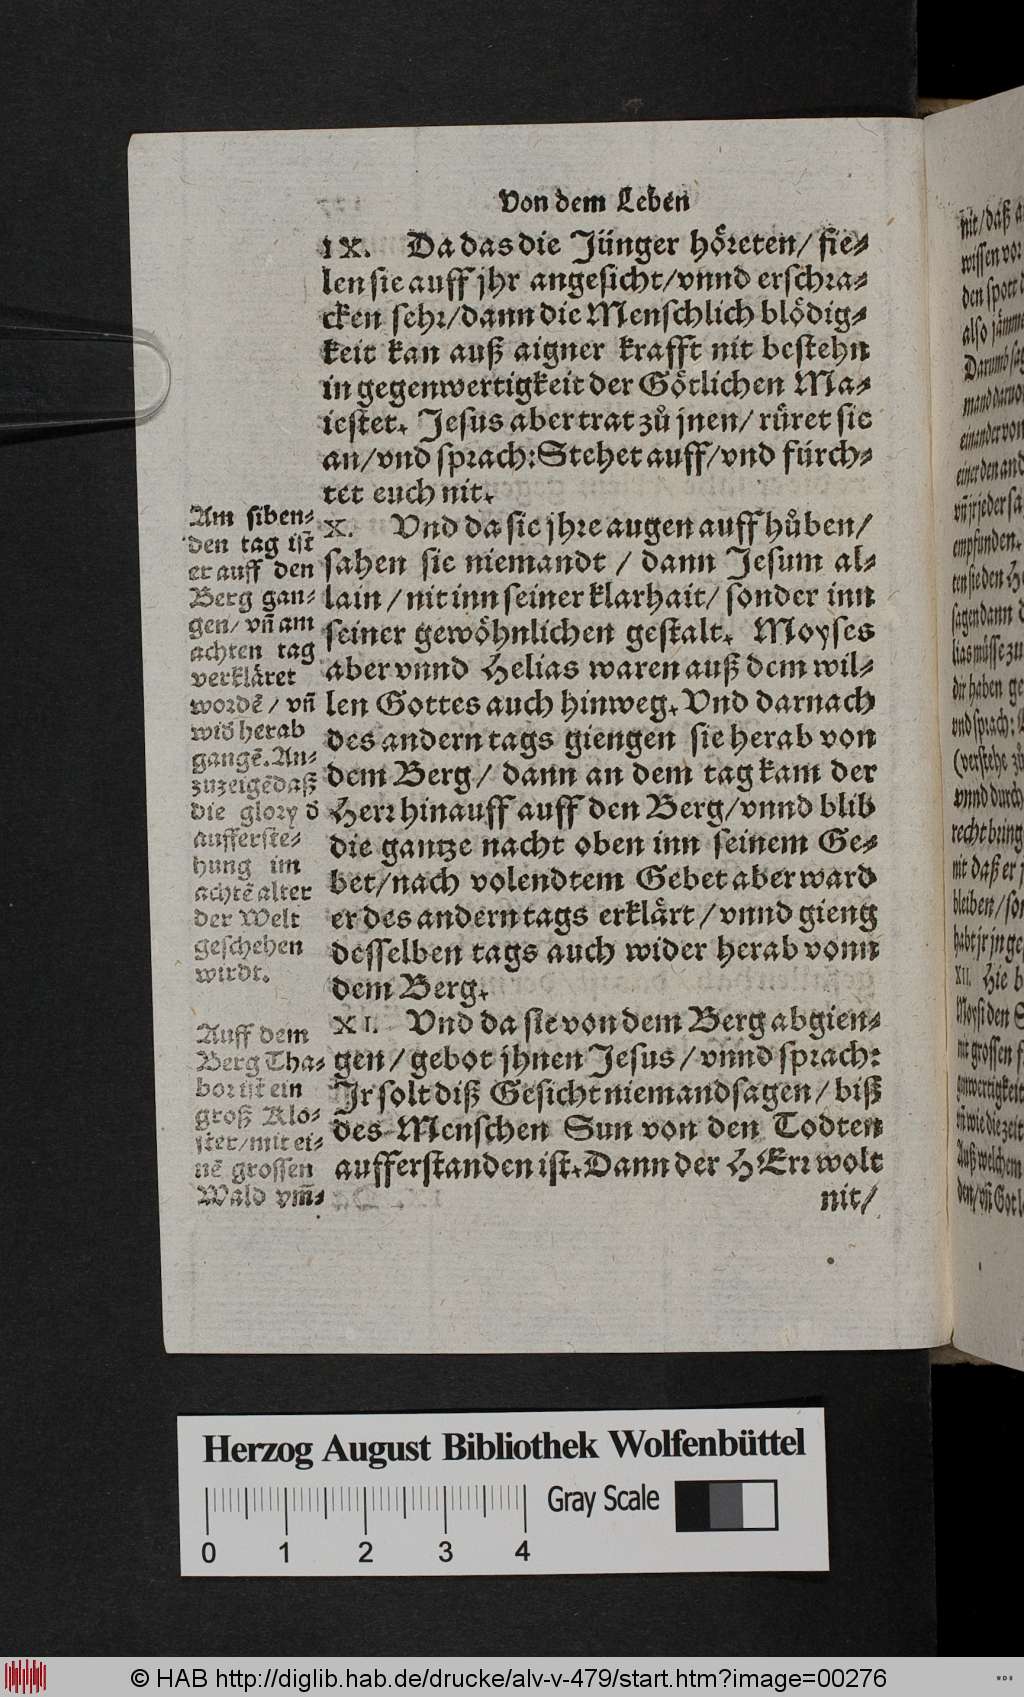 Von dem Leben
IX. Da das die Jünger höreten/ fie-
len sie auff jhr angesicht/vnnd erschra-
cken sehr/dann die Menschlich blödig-
keit kan auß aigner krafft nit bestehn
in gegenwertigkeit der Götlichen Ma-
iestet. Jesus aber trat zů jnen/ rüret sie
an/vnd sprach: Stehet auff/vnd fürch-
tet euch nit.
X. Vnd da sie jhre augen auff hůben/
sahen sie niemandt / dann Jesum al-
lain / nit inn seiner klarhait/ sonder inn
seiner gewöhnlichen gestalt. Moyses
aber vnnd Helias waren auß dem wil-
len Gottes auch hinweg. Vnd darnach
des andern tags giengen sie herab von
dem Berg/ dann an dem tag kam der
Herr hinauff auff den Berg/vnnd blib
die gantze nacht oben inn seinem Ge-
bet/nach volendtem Gebet aber ward
er des andern tags erklärt /vnnd gieng
desselben tags auch wider herab vonn
dem Berg.
XI. Vnd da sie von dem Berg abgien-
gen / gebot jhnen Jesus / vnnd sprach:
Ir solt diß Gesicht niemand sagen / biß
des Menschen Sun von den Todten
aufferstanden ist. Dann der HErr wolt
nit/
Am siben-
den tag ist
er auff den
Berg gan-
gen/ vñ am
achten tag
verkläret
wordẽ / vñ
wid̃ herab
gangẽ. An-
zuzeigẽ daß
die glory d̃
aufferste-
hung im
achtẽ alter
der Welt
geschehen
wirdt.
Auff dem
Berg Tha-
bor ist ein
groß Klo-
ster/mit ei-
nẽ grossen
Wald vm̃-
nit/daß
wissen vor
den spott
also
Darumb
einander von
einer den
vñ jr jeder
empfunden.
sagen dann
dir haben
vnd sprach:
(verstehe
vnnd durch
recht
nit daß er
bleiben/
habt jr
XII. Hie
Moysi den
mit grossen
vñ wie die zeit
Auß welchem
den/vñ
Herzog August Bibliothek Wolfenbüttel
0 1 2 3 4
Gray Scale
© HAB http://diglib.hab.de/drucke/alv-v-479/start.htm?image=00276